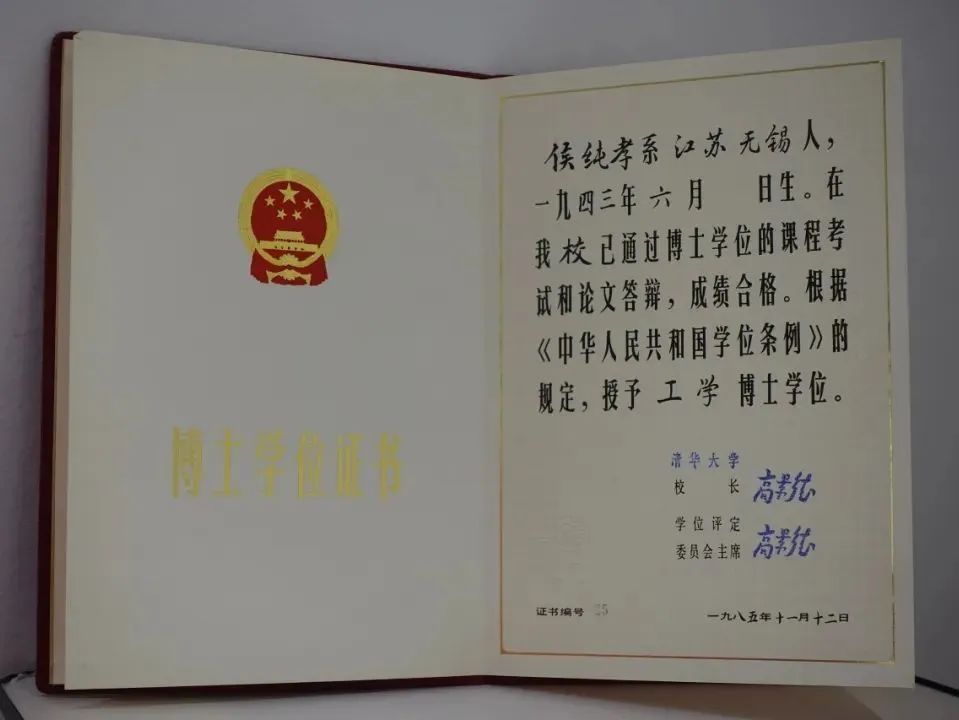 博士学位证书
侯纯孝系江苏无锡人，
一九四三年六月 日生。在
我校已通过博士学位的课程考
试和论文答辩，成绩合格。根据
《中华人民共和国学位条例》的
规定，授予 工学 博士学位。
清华大学
校 长 高景德
学位评定
委员会主席 高景德
证书编号 25
一九八五年十一月十二日